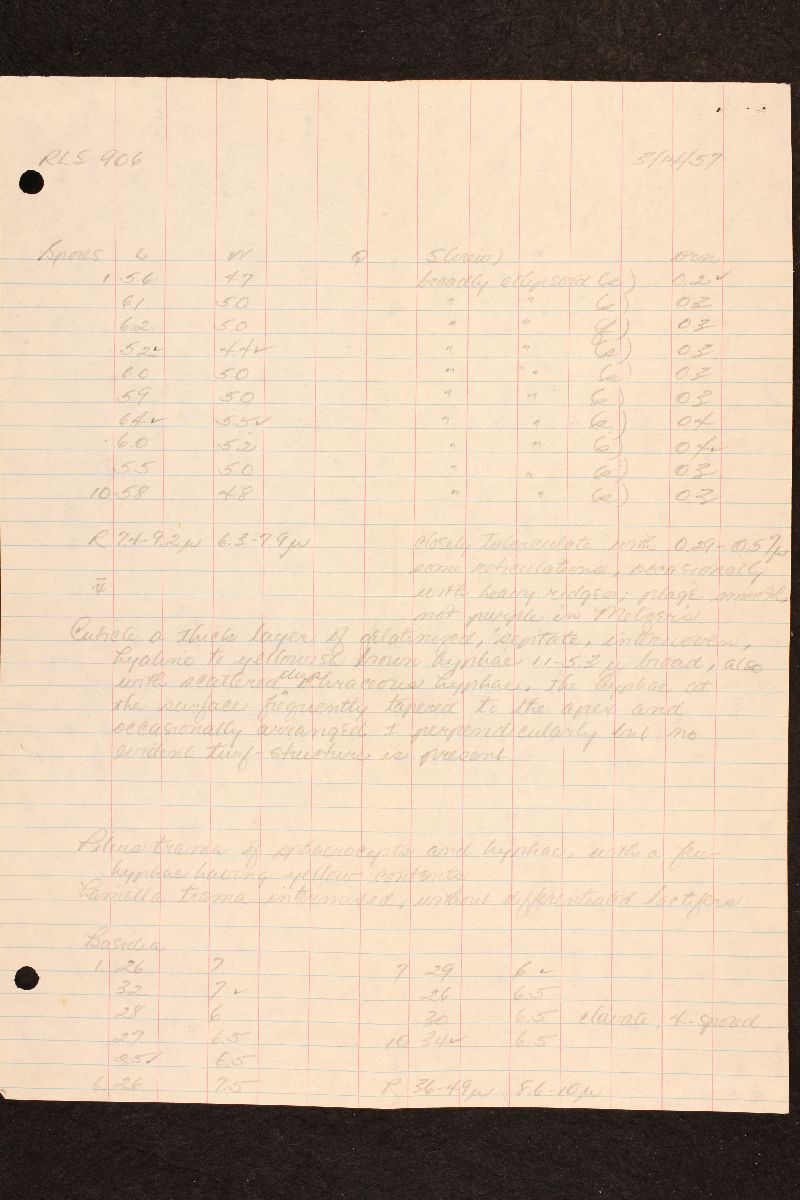 RLS 906 3/14/57
Spores L W Q S(view) orn
1 5.6 4.7 broadly ellipsoid (e) 0.2✓
6.1 5.0 " " (e) 0.3
6.2 5.0 " " ( ) 0.3
5.2✓ 4.4✓ " " (e) 0.3
6.0 5.0 " " (e) 0.3
5.9 5.0 " " (e) 0.3
6.4✓ 5.5✓ " " (e) 0.4
6.0 5.2 " " (e) 0.4✓
5.5 5.0 " " (e) 0.3
10 5.8 4.8 " " (e) 0.3
R 7.4-9.2 µ 6.3-7.9 µ closely tuberculate with 0.29-0.57µ
some reticulations, occasionally
with heavy ridges; plage smooth
not purple in Melzer's
Cuticle a thick layer of gelatinized, septate, interwoven,
hyaline to yellowish brown hyphae 1.1-5.3 µ broad, also
with scattered hyphae, the hyphae at
the surface frequently tapered to the apex and
occasionally arranged ± perpendicularly but no
evident turf-structure is present
Pileus trama of sphaerocysts and hyphae, with a few
hyphae having yellow contents
Lamella trama intermixed, without differentiated lactifers
Basidia
1. 26 7 7 29 6✓
32 7✓ 26 6.5
28 6 30 6.5 clavate, 4-spored
27 6.5 10 34✓ 6.5
25✓ 6.5
6. 26 7.5 R 36-49µ 8.6-10µ